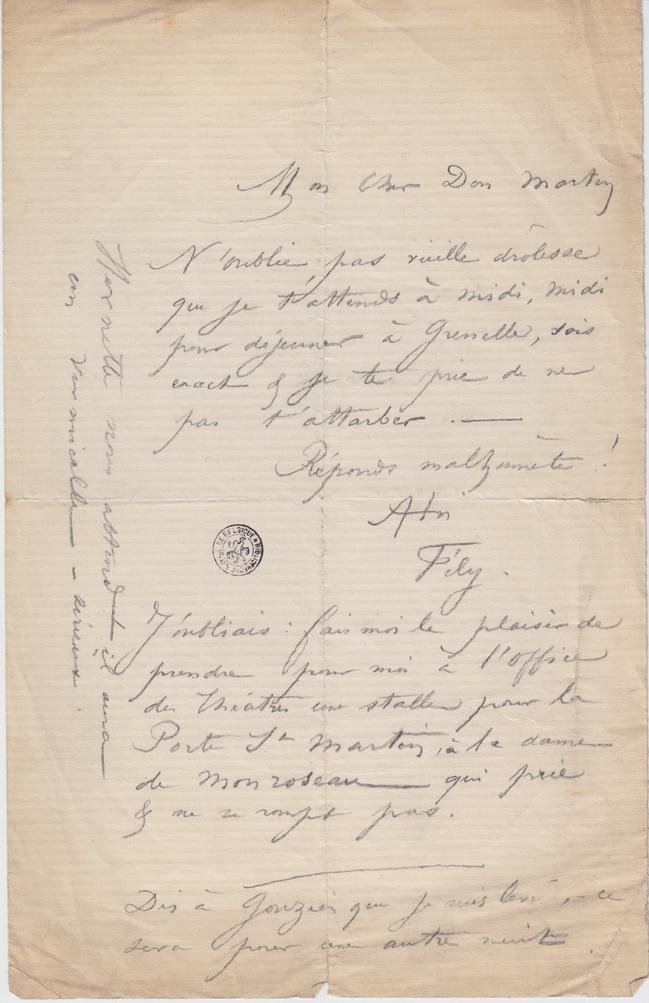 Mon Cher Don Martin
N'oublie pas vieille drôlesse
que je t'attends à midi, midi
pour déjeuner à Grenelle, sois
exact & je te prie de ne
pas t'attarder.
Réponds malhonnête !
À toi
Fély.
J'oubliais : fais moi le plaisir de
prendre pour moi à l'office
des théâtres une stalle pour la
Porte St Martin, à la dame
de Monroseau qui prie
& ne se rompt pas.
Dis à Gouzien que je suis levé, ce
sera pour une autre nuit.
nous attend il sera
en vermicelle - sérieux.
BIBLIOTHEQUE DE BELGIQUE